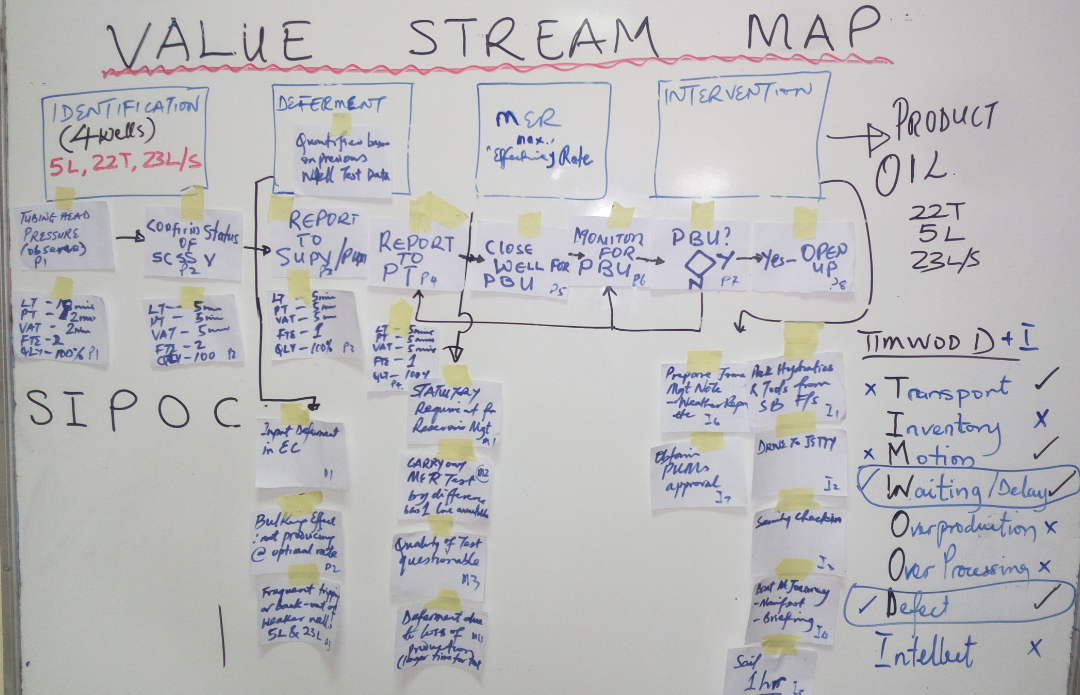 VALUE STREAM MAP
IDENTIFICATION
(4 wells)
5L, 22T, 23L/S
DEFERMENT
Quantified based
on previous
Well Test Data
MER
max..
Effecting Rate
INTERVENTION
PRODUCT
OIL
22T
5L
23L/S
TUBING HEAD
PRESSURE
(observed)
P1
Confirm Status
OF
SCSSV
P2
REPORT
TO
SUPV/
P3
REPORT
TO
PT P4
CLOSE
WELL FOR
PBU P5
MONITOR
FOR
PBU P6
PBU?
Y
N
P7
Yes - OPEN
UP
P8
LT -
PT - 2min
VAT - 2min
FTE - 2
QLT - 100% P1
LT - 5min
PT - 5min
VAT - 5min
FTE - 2
- 100 P2
LT - 5min
PT - 5min
VAT - 5min
FTE - 1
QLT - 100%
LT - 5min
PT - 5min
VAT - 5min
FTE - 1
QLT - 100%
P4
SIPOC
Input Deferment
in EC
D1
Bulking Effect
: not producing
@ optimal rate
D2
Frequent
or back-out of
weaker well:
5L & 23L
STATUTORY
Requirement for
Reservoir Mgt
M1
CARRYOUT M2
MER Test
by difference
1 line available
Quality of Test
questionable
M3
Deferment due
to loss of
production
(longer time for
Prepare
Mgt Note
- Weather Repo
etc I6
Obtain
approval
I7
Hydraulics
& Tools from
SB F/S I1
DRIVE TO JETTY
I2
Security Checkin
Boat
- Manifest
- Briefing
Sail
1 hr
TIMWOOD + I
x Transport ✓
Inventory x
x Motion ✓
✓ Waiting/Delay ✓
Overproduction x
Over Processing x
✓ Defect ✓
Intellect x